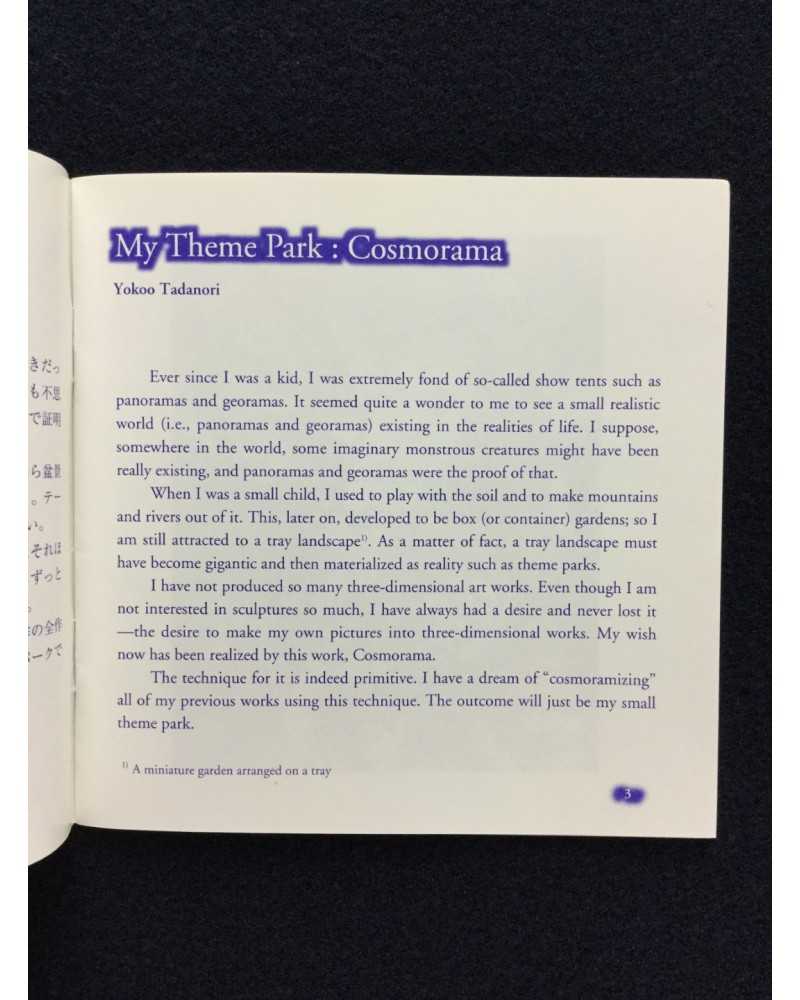 きだっ
も不思
で証明
ら盆景
。テー
い。
それほ
ずっと
。
の全作
ークで
My Theme Park : Cosmorama
Yokoo Tadanori
Ever since I was a kid, I was extremely fond of so-called show tents such as
panoramas and georamas. It seemed quite a wonder to me to see a small realistic
world (i.e., panoramas and georamas) existing in the realities of life. I suppose,
somewhere in the world, some imaginary monstrous creatures might have been
really existing, and panoramas and georamas were the proof of that.
When I was a small child, I used to play with the soil and to make mountains
and rivers out of it. This, later on, developed to be box (or container) gardens; so I
am still attracted to a tray landscape¹⁾. As a matter of fact, a tray landscape must
have become gigantic and then materialized as reality such as theme parks.
I have not produced so many three-dimensional art works. Even though I am
not interested in sculptures so much, I have always had a desire and never lost it
—the desire to make my own pictures into three-dimensional works. My wish
now has been realized by this work, Cosmorama.
The technique for it is indeed primitive. I have a dream of “cosmoramizing”
all of my previous works using this technique. The outcome will just be my small
theme park.
¹⁾ A miniature garden arranged on a tray
3